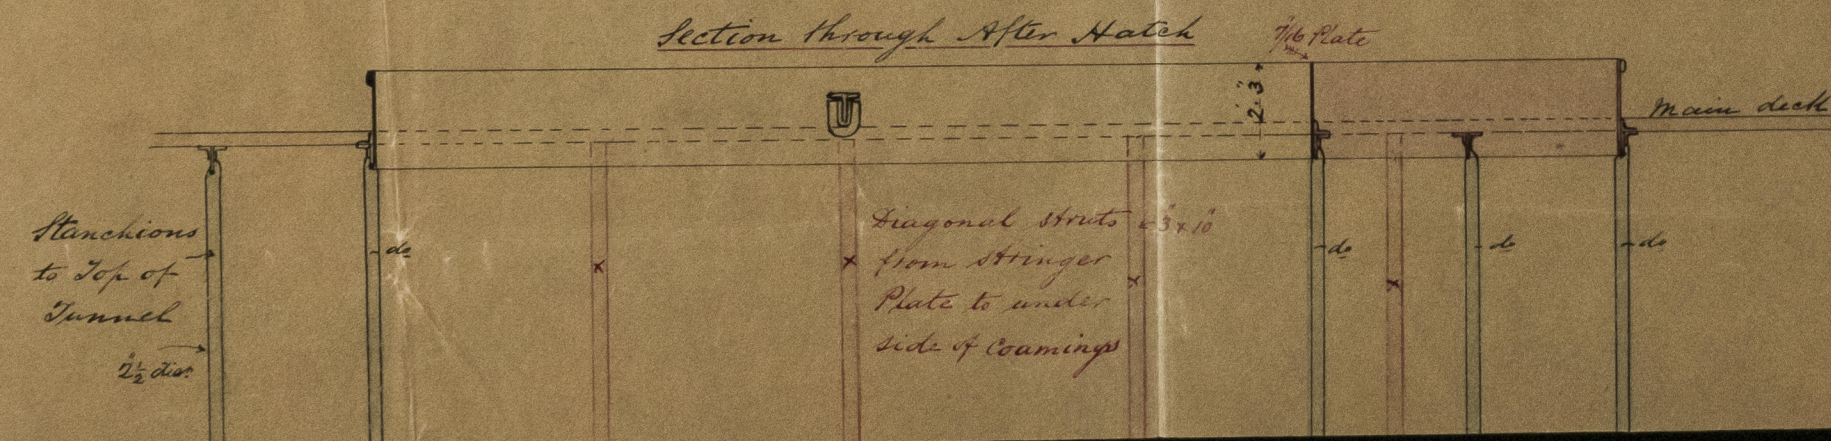 Section through After Hatch
7/16" Plate
2' 3"
Main deck
Stanchions
to Top of
Tunnel
2 1/2" dia.
do
Diagonal struts - 3" x 10"
from stringer
Plate to under
side of Coamings
do
do
do
x
x
x
x